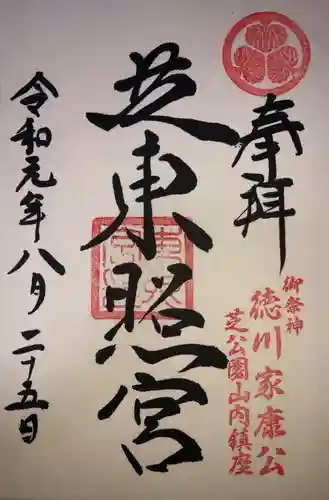 奉拝
御祭神
徳川家康公
芝公園山内鎮座
芝東照宮
令和元年八月二十五日